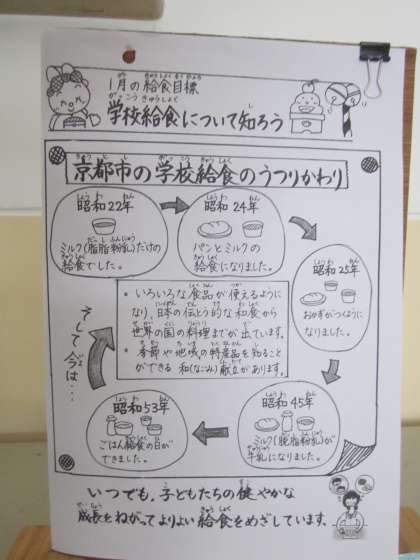 1月の給食目標
学校給食について知ろう
京都市の学校給食のうつりかわり
昭和22年
ミルク(脂脂粉乳)だけの
給食でした。
昭和24年
パンとミルクの
給食になりました。
昭和25年
おかずがつくように
なりました。
昭和45年
ミルク(脱脂粉乳)が
牛乳になりました。
昭和53年
ごはん給食の日が
できました。
そして今は…
・いろいろな食品が使えるように
なり、日本の伝とう的な和食から
世界の国の料理までが出ています。
・季節や地域の特産品を知ること
ができる 和(なごみ)献立があります。
いつでも、子どもたちの健やかな
成長をねがってよりよい給食をめざしています。